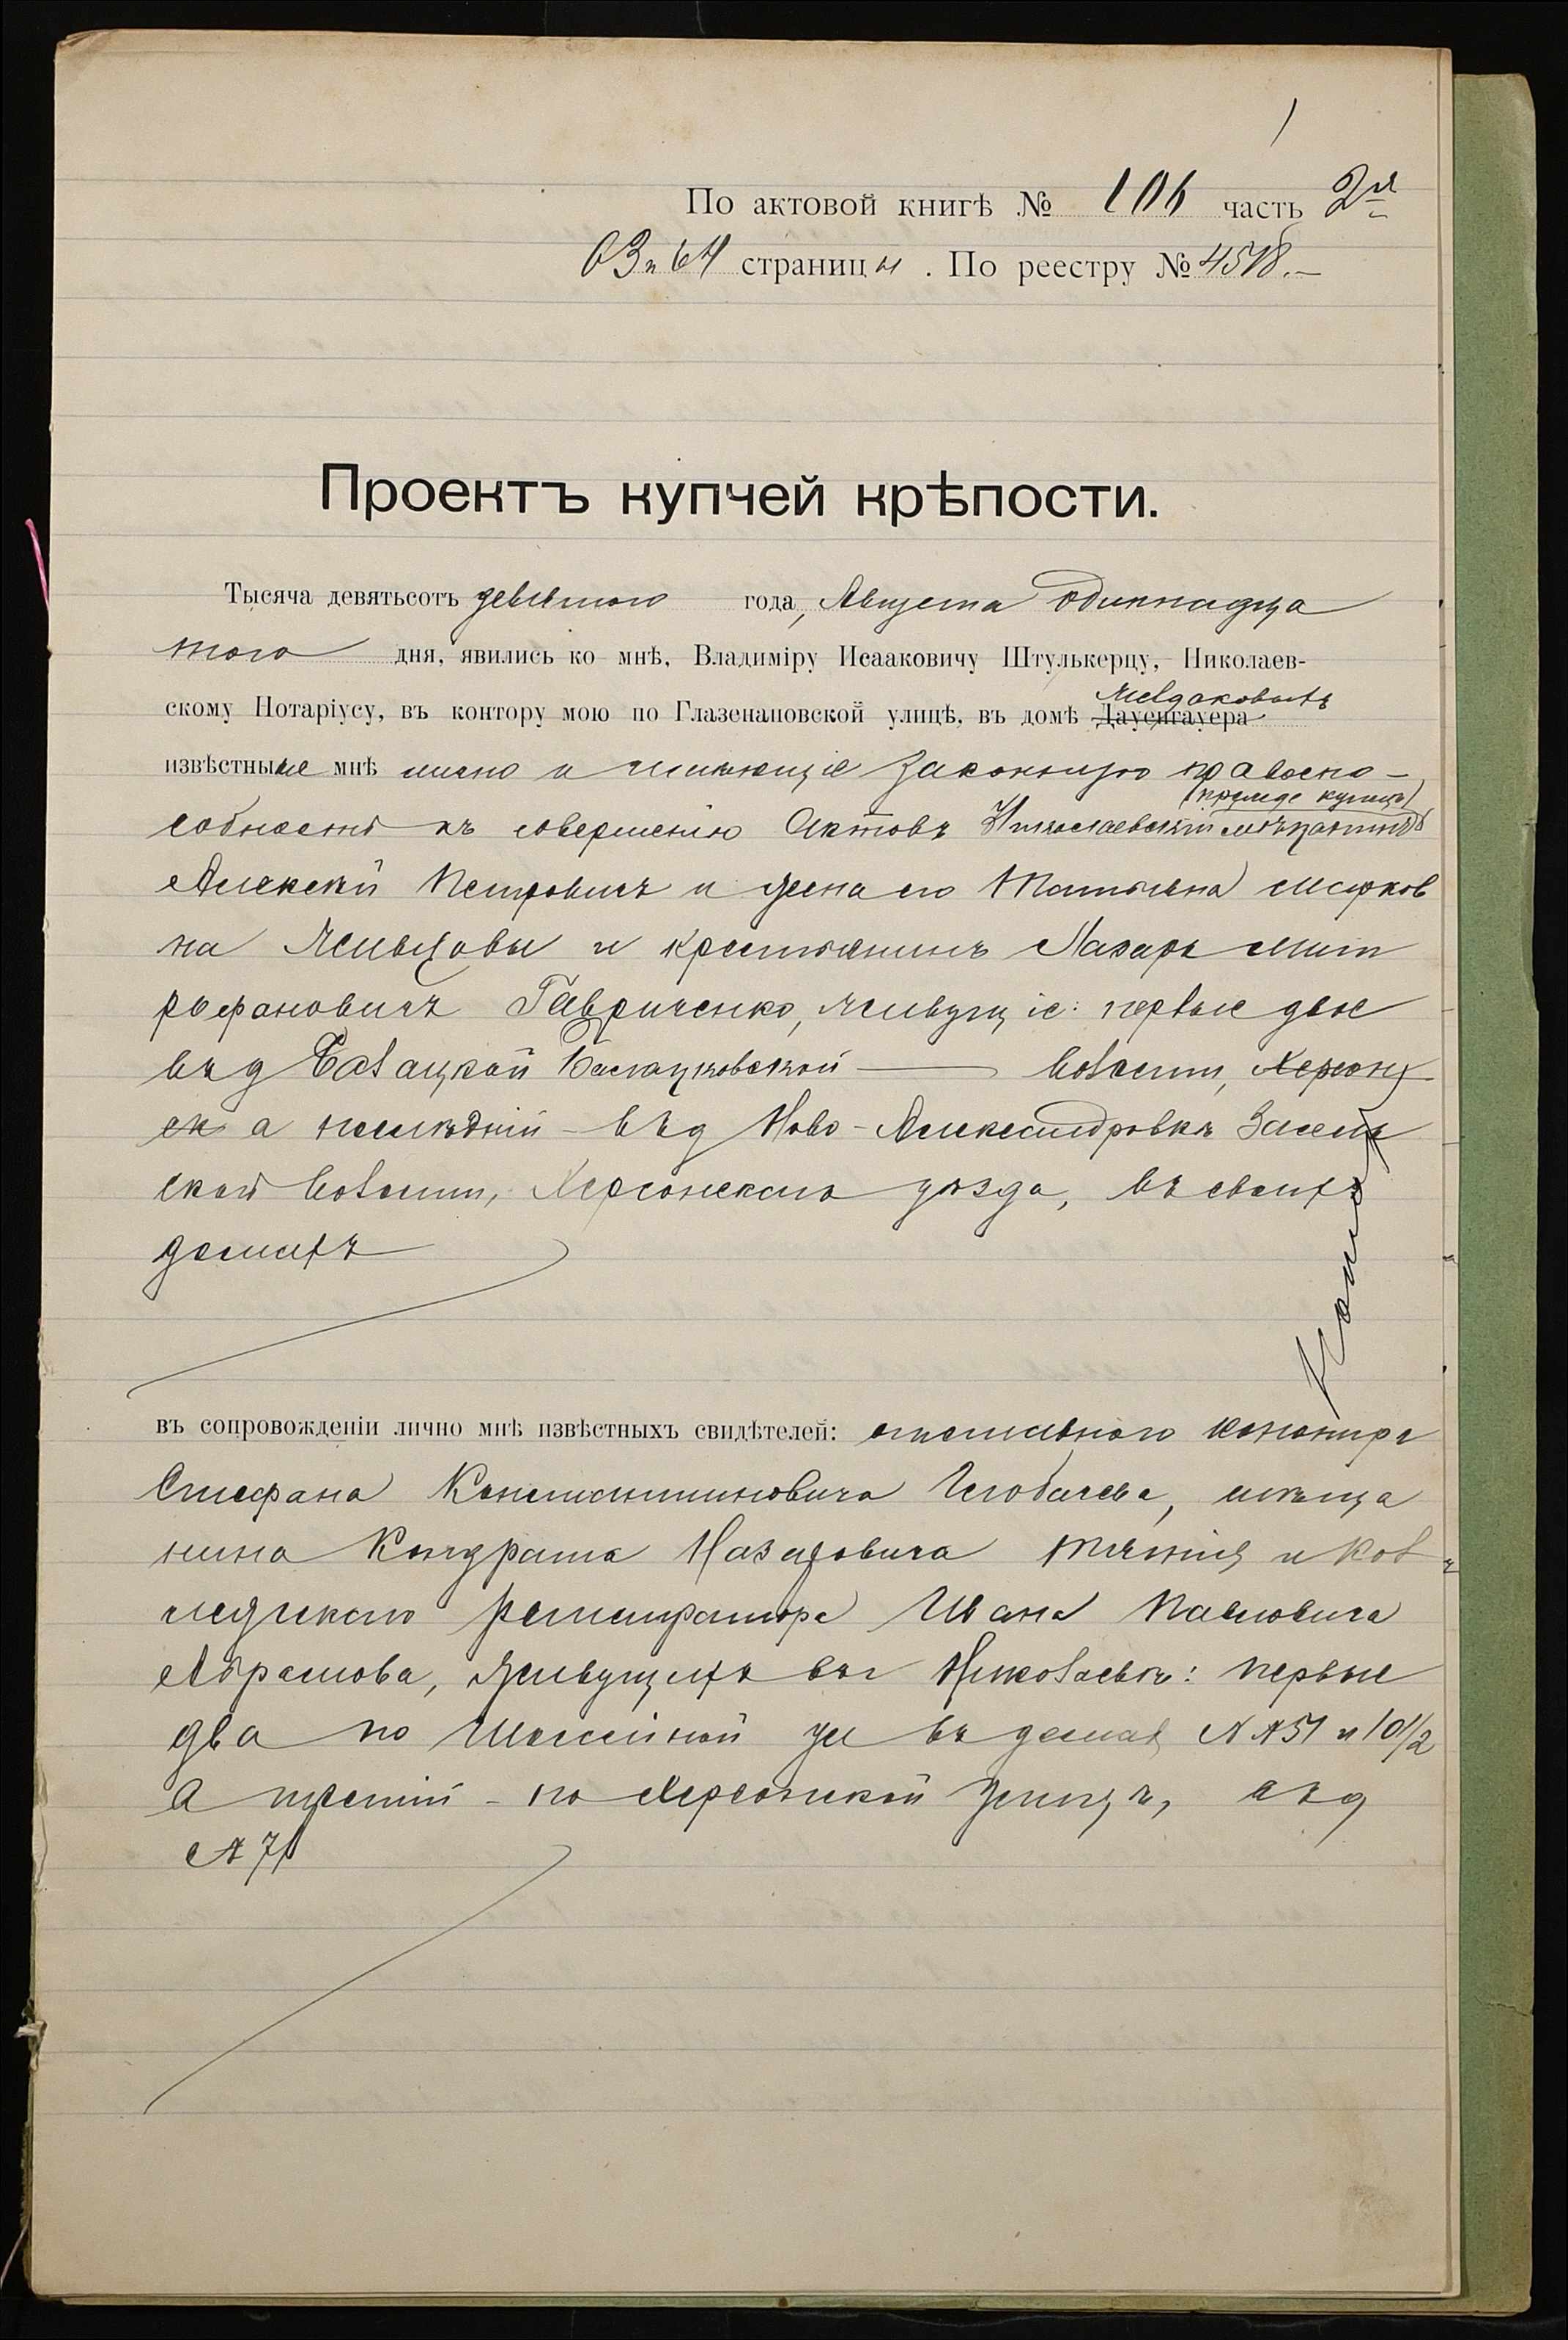 По актовой книгѣ № 106 часть 2я
63 и 64 страницы. По реестру № 4518.—
Проектъ купчей крѣпости.
Тысяча девятьсотъ девятого года, Августа одиннадца
того дня, явились ко мнѣ, Владиміру Исааковичу Штулькерцу, Николаев-
скому Нотаріусу, въ контору мою по Глазенаповской улицѣ, въ домѣ Дауенгауера
извѣстные мнѣ лично и имѣющіе законную правоспо-
(прежде купецъ)
собность къ совершенію актовъ Николаевскій мѣщанинъ
Алексѣй Петровичъ и жена его Татьяна Марков
на и крестьянинъ Лазарь Мит
рофановичъ Гавриченко, живущіе: первые двое
въ д Балацкой Баслацковской волости, Херсон
ск а послѣдній - въ д Ново-Александровкѣ Засель
ской волости, Херсонскаго уѣзда, въ своихъ
домахъ
Копія
въ сопровожденіи лично мнѣ извѣстныхъ свидѣтелей: отставного
Стефана Константиновича Глобачева, мѣща
нина Кондрата Назаровича и кол
лежскаго регистратора Ивана Павловича
Абрамова, живущихъ въ г Николаевѣ: первые
два по Шоссейной ул въ домах №№ 51 и 101/2
а третій - по Херсонской улицѣ, въ д
№ 71